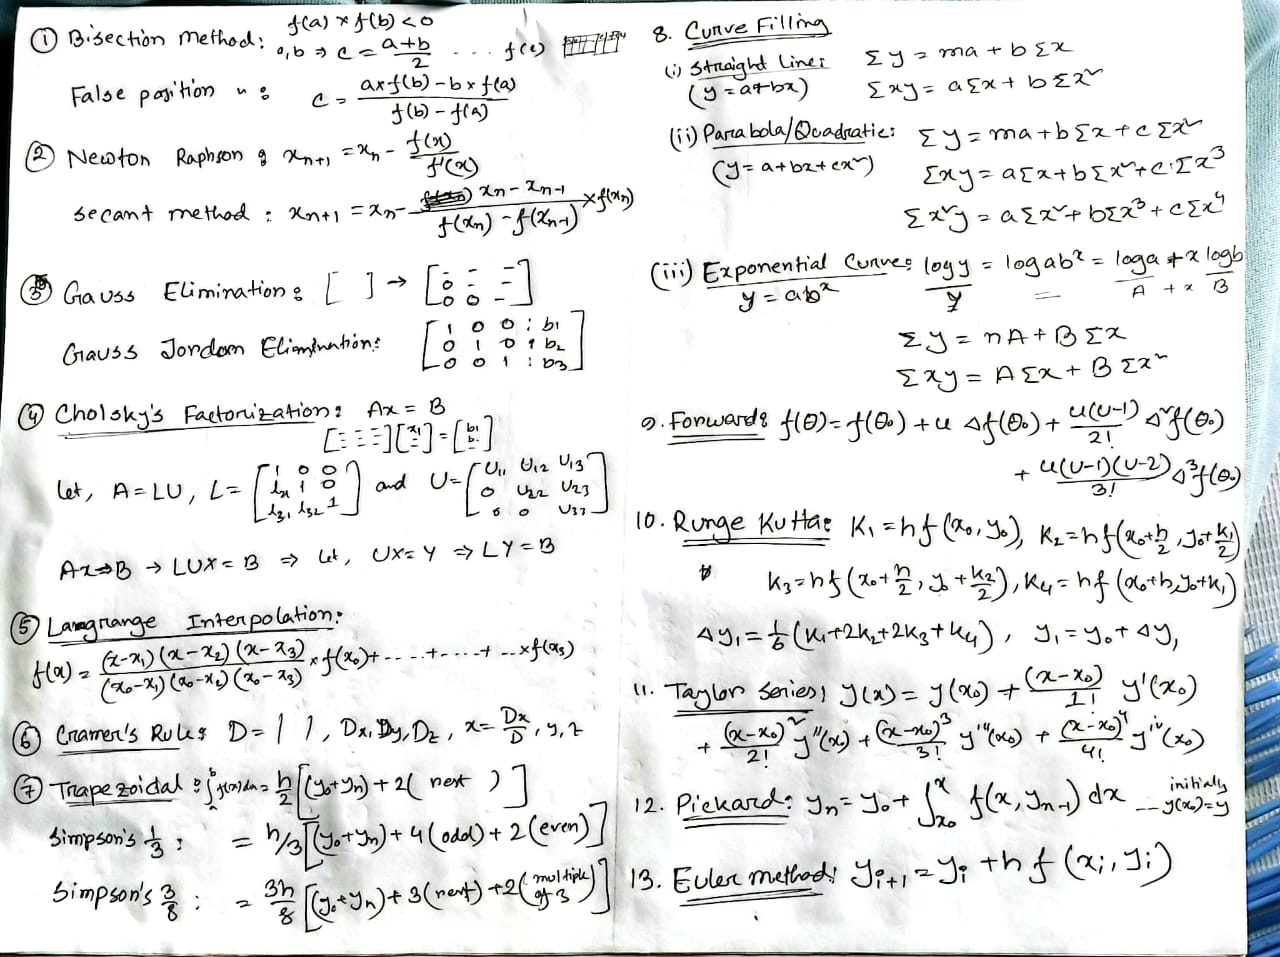 ① Bisection Method: f(a) × f(b) < 0
a, b ⇒ c = a+b/2 ... f(c)
False position " : c = a×f(b) - b×f(a) / f(b) - f(a)
② Newton Raphson : xn+1 = xn - f(x)/f'(x)
Secant method : xn+1 = xn - xn - xn-1 / f(xn) - f(xn-1) × f(xn)
③ Gauss Elimination : [ ] → [- - - 0 - - 0 0 -]
Gauss Jordan Elimination: [1 0 0 : b1
0 1 0 : b2
0 0 1 : b3]
④ Cholsky's Factorization: Ax = B
[:::][x1]=[b1 b:]
let, A = LU, L = [1 0 0 l21 1 0 l31 l32 1] and U = [U11 U12 U13 0 U22 U23 0 0 U33]
Ax=B → LUX = B ⇒ let, UX = Y ⇒ LY = B
⑤ Langrange Interpolation:
f(x) = (x-x1)(x-x2)(x-x3) / (x0-x1)(x0-x2)(x0-x3) × f(x0)+ ---- + ---- + -- × f(x3)
⑥ Cramer's Rule: D = | |, Dx, Dy, Dz, x = Dx/D, y, z
⑦ Trapezoidal : ∫ab f(x)dx = h/2 [(y0+yn) + 2( rest )]
Simpson's 1/3 : = h/3 [(y0+yn) + 4(odd) + 2(even)]
Simpson's 3/8 : = 3h/8 [(y0+yn) + 3(rest) + 2(multiple of 3)]
8. Curve Filling
(i) Straight Line: Σy = ma + bΣx
(y = a+bx) Σxy = aΣx + bΣx²
(ii) Parabola/Quadratic: Σy = ma + bΣx + cΣx²
(y = a+bx+cx²) Σxy = aΣx + bΣx² + c.Σx³
Σx²y = aΣx² + bΣx³ + cΣx⁴
(iii) Exponential Curve: log y = log abˣ = log a + x log b
y = abˣ y A + x B
Σy = nA + BΣx
Σxy = AΣx + BΣx²
9. Forward: f(θ) = f(θ0) + u Δf(θ0) + u(u-1)/2! Δ²f(θ0)
+ u(u-1)(u-2)/3! Δ³f(θ0)
10. Runge Kutta: K1 = hf(x0, y0), K2 = hf(x0+h/2, y0+k1/2)
K3 = hf(x0+h/2, y0+k2/2), K4 = hf(x0+h, y0+k1)
Δy1 = 1/6 (K1+2K2+2K3+K4), y1 = y0 + Δy1
11. Taylor Series; y(x) = y(x0) + (x-x0)/1! y'(x0)
+ (x-x0)²/2! y''(x0) + (x-x0)³/3! y'''(x0) + (x-x0)⁴/4! yiv(x0)
12. Pickard: yn = y0 + ∫x0x f(x, yn-1) dx -- initially y(x0)=y
13. Euler method: yi+1 = yi + h f(xi, yi)